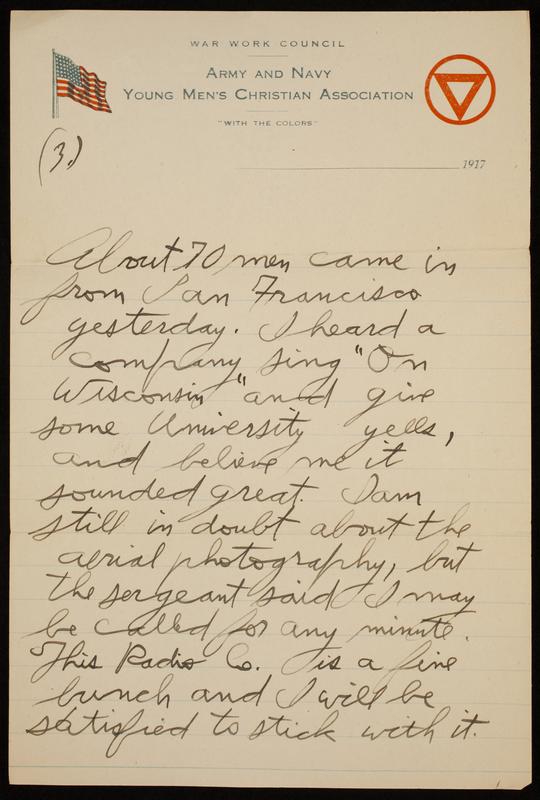 WAR WORK COUNCIL
ARMY AND NAVY
YOUNG MEN'S CHRISTIAN ASSOCIATION
"WITH THE COLORS"
(3.)
1917
About 70 men came in
from San Francisco
yesterday. I heard a
company sing "On
Wisconsin" and give
some University yells,
and believe me it
sounded great. I am
still in doubt about the
aerial photography, but
the sergeant said I may
be called for any minute.
This Radio Co. is a fine
bunch and I will be
satisfied to stick with it.